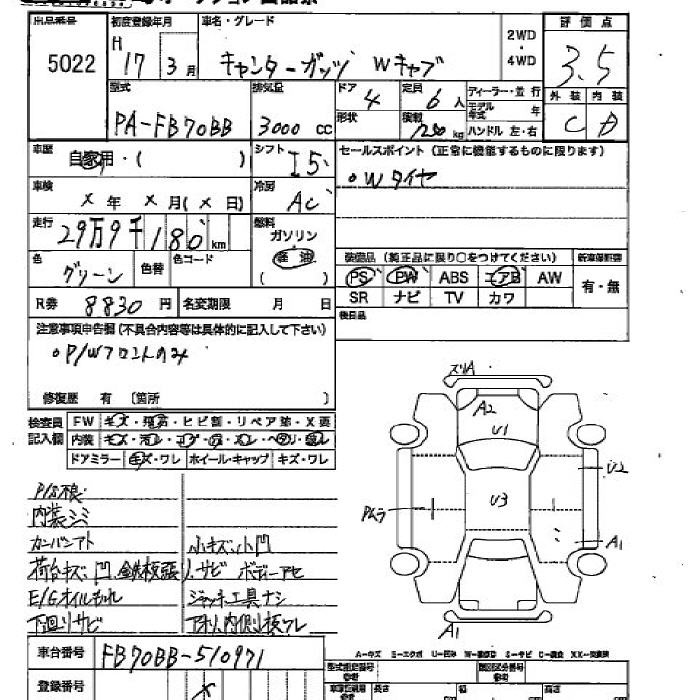 出品番号 初度登録年月 車名・グレード 評価点
5022 H 17 3月 キャンターガッツ Wキャブ 2WD・4WD 3.5
型式 排気量 ドア 4 定員 6人 ディーラー・並行 外装 内装
PA-FB70BB 3000cc 形状 積載 kg モデル年式 年 C D
ハンドル 左・右
車歴 自家用・( ) シフト I5 セールスポイント(正常に機能するものに限ります)
車検 ×年 ×月(×日) 冷房 AC 。Wタイヤ
走行 29万9千180km 燃料 ガソリン 軽油 ( )
色 グリーン 色替 色コード
装備品(純正品に限り○をつけてください) 新車保証書
PS PW ABS エアB AW 有・無
SR ナビ TV カワ
R券 8830円 名変期限 月 日
後日品
注意事項申告欄(不具合内容等は具体的に記入して下さい)
。P/Wフロントのみ
修復歴 有〔箇所 〕
検査員記入欄 FW キズ・飛石・ヒビ割・リペア跡・X要
内装 キズ・汚レ・コゲ・穴・スレ・ヘタリ・臭レ
ドアミラー キズ・ワレ ホイール・キャップ キズ・ワレ
ズリA
A2
U1
U2
U3
Pムラ
A1
A1
P/S不良
内装シミ
カンバンアト 小キズ、小凹
荷台キズ、凹、鉄板張 サビ ボデーアセ
E/Gオイルもれ ジャッキ工具ナシ
下廻リサビ
車台番号 FB70BB-510971
A=キズ U=凹み W=補修跡 S=サビ C=腐食 XX=交換済
登録番号 ×
型式指定番号 参考 類別区分番号 参考
長さ 幅 高さ